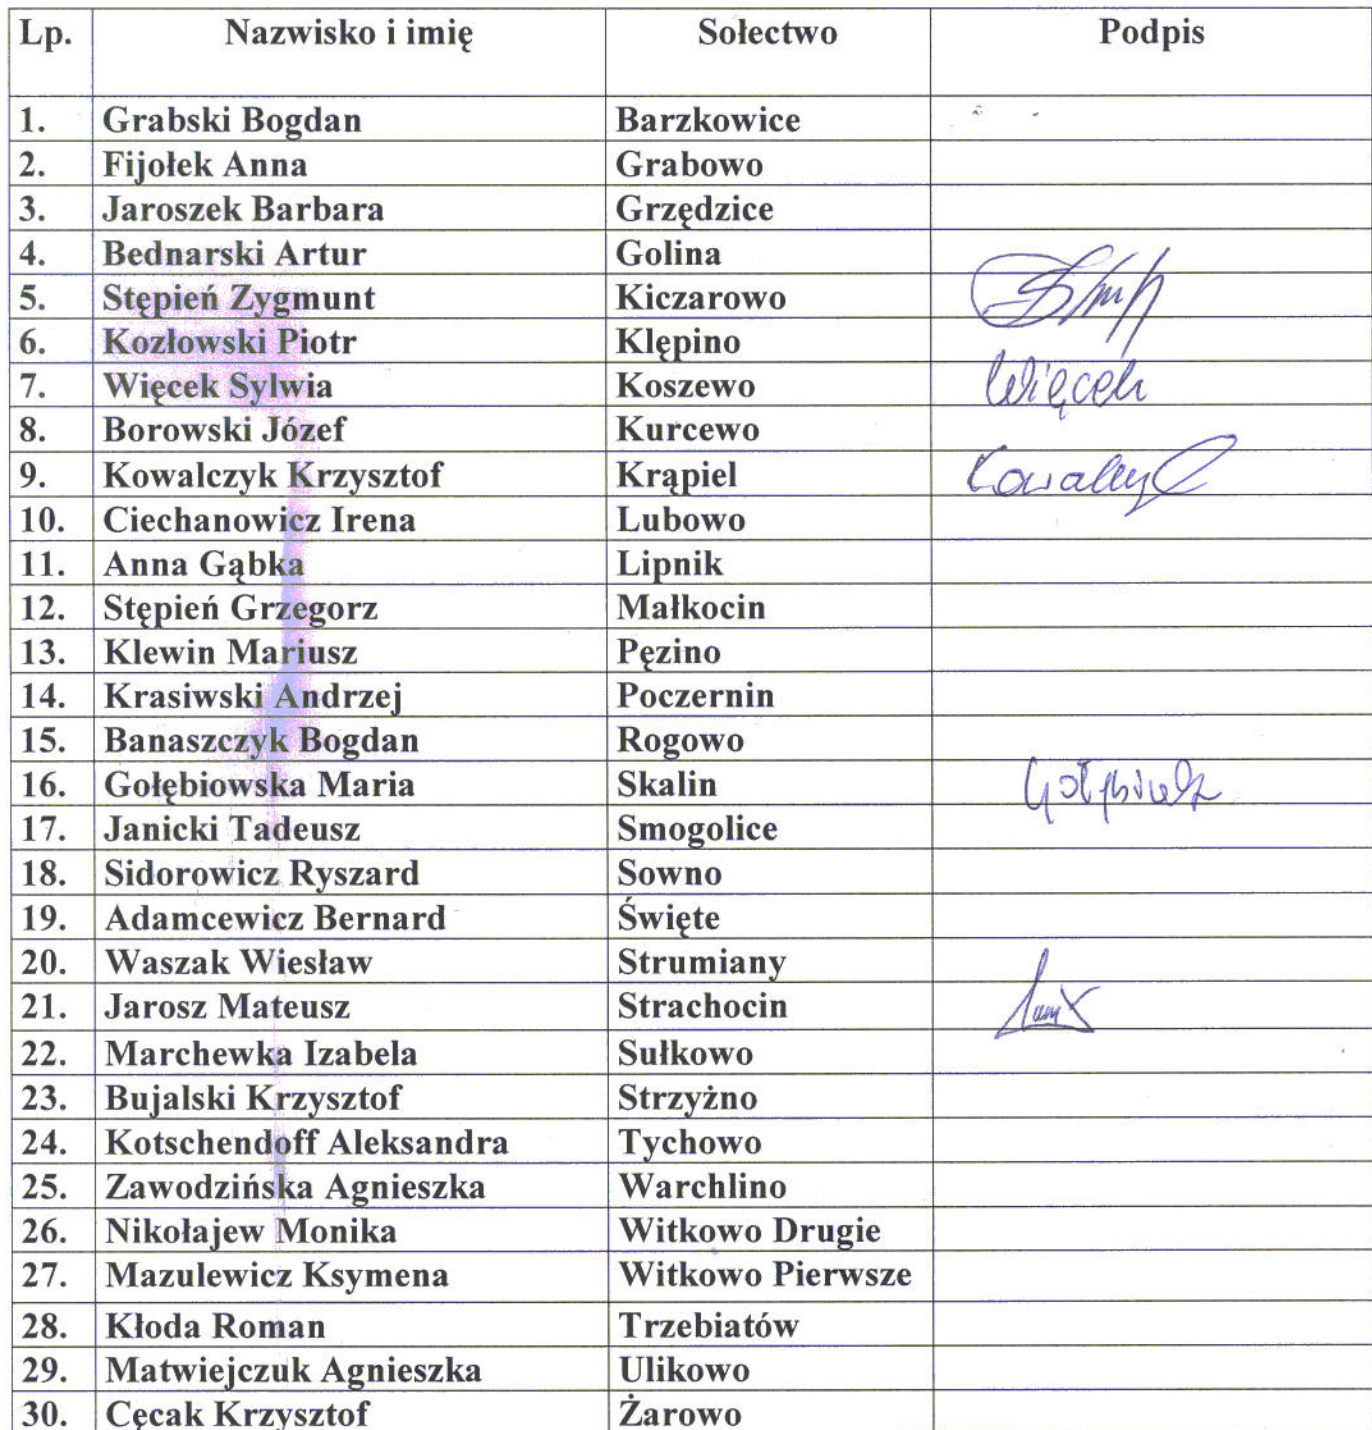 Lp. Nazwisko i imię Sołectwo Podpis
1. Grabski Bogdan Barzkowice
2. Fijołek Anna Grabowo
3. Jaroszek Barbara Grzędzice
4. Bednarski Artur Golina
5. Stępień Zygmunt Kiczarowo
6. Kozłowski Piotr Klępino
7. Więcek Sylwia Koszewo Więcek
8. Borowski Józef Kurcewo
9. Kowalczyk Krzysztof Krąpiel
10. Ciechanowicz Irena Lubowo
11. Anna Gąbka Lipnik
12. Stępień Grzegorz Małkocin
13. Klewin Mariusz Pęzino
14. Krasiwski Andrzej Poczernin
15. Banaszczyk Bogdan Rogowo
16. Gołębiowska Maria Skalin
17. Janicki Tadeusz Smogolice
18. Sidorowicz Ryszard Sowno
19. Adamcewicz Bernard Święte
20. Waszak Wiesław Strumiany
21. Jarosz Mateusz Strachocin
22. Marchewka Izabela Sułkowo
23. Bujalski Krzysztof Strzyżno
24. Kotschendoff Aleksandra Tychowo
25. Zawodzińska Agnieszka Warchlino
26. Nikołajew Monika Witkowo Drugie
27. Mazulewicz Ksymena Witkowo Pierwsze
28. Kłoda Roman Trzebiatów
29. Matwiejczuk Agnieszka Ulikowo
30. Cęcak Krzysztof Żarowo